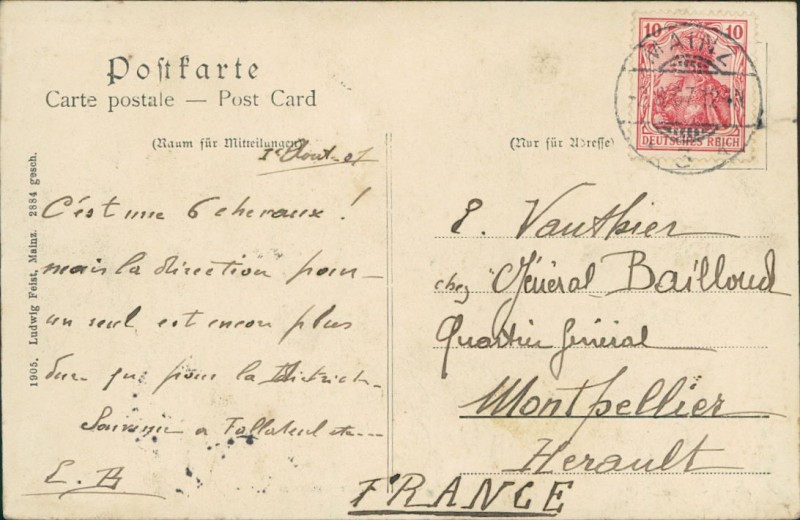 Postkarte
Carte postale — Post Card
(Raum für Mitteilungen)
Aout-07
C'est une 6 chevaux!
mais la direction pour
un seul est encore plus
dure que pour la
Souvenir a
E. B
1905. Ludwig Feist, Mainz. 2884 gesch.
10 10
DEUTSCHES REICH
MAINZ
(Nur für Adresse)
E. Vauthier
chez Général Bailloud
Quartier Général
Montpellier
Herault
FRANCE